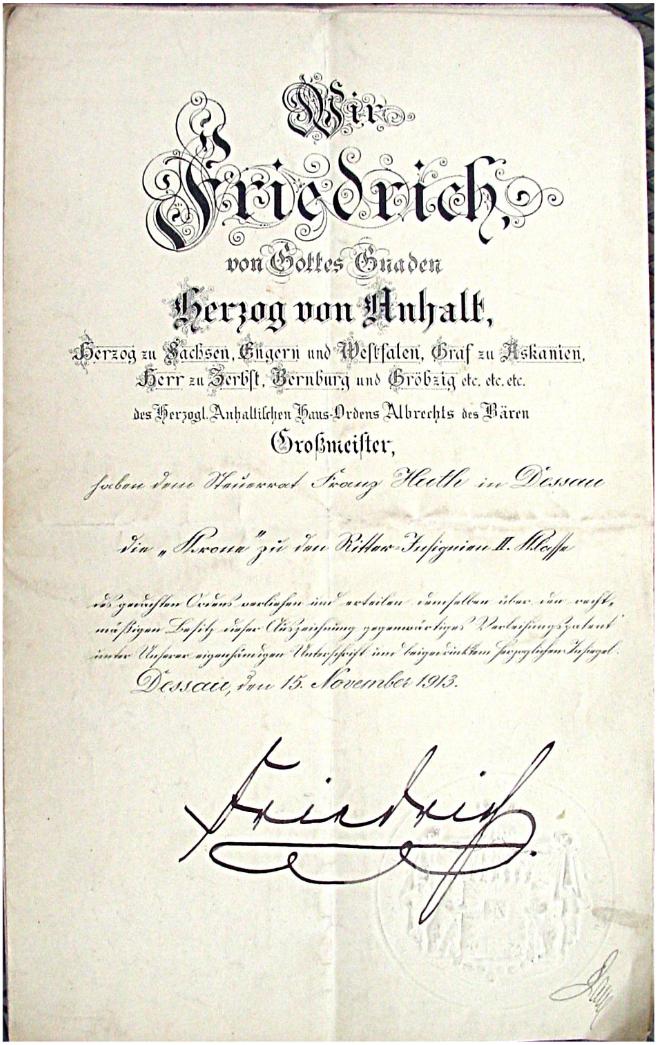 Wir
Friedrich,
von Gottes Gnaden
Herzog von Anhalt,
Herzog zu Sachsen, Engern und Westfalen, Graf zu Askanien,
Herr zu Zerbst, Bernburg und Gröbzig etc. etc. etc.
des Herzogl. Anhaltischen Haus-Ordens Albrechts des Bären
Großmeister,
haben dem Steuerrat Franz Huth in Dessau
die „Krone“ zu den Ritter-Insignien II. Klasse
des gedachten Ordens verliehen und erteilen demselben über den recht-
mäßigen Besitz dieser Auszeichnung gegenwärtiges Verleihungspatent
unter Unserer eigenhändigen Unterschrift und beigedrucktem Herzoglichen Insiegel.
Dessau, den 15. November 1913.
Friedrich.